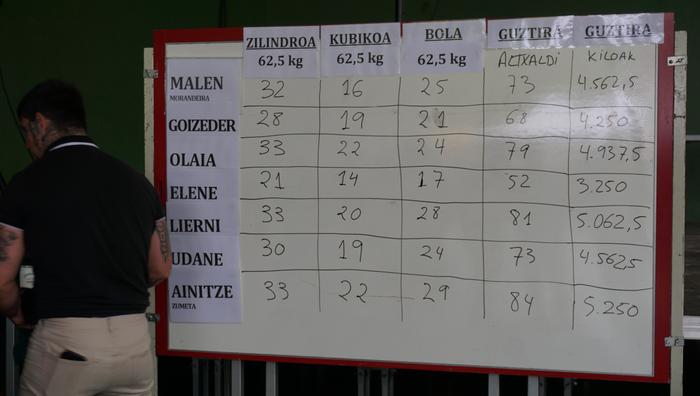 ZILINDROA KUBIKOA BOLA GUZTIRA GUZTIRA
62,5 kg 62,5 kg 62,5 kg ALTXALDI KILOAK
MALEN 32 16 25 73 4.562,5
MORANDEIRA
GOIZEDER 28 19 21 68 4.250
OLAIA 33 22 24 79 4.937,5
ELENE 21 14 17 52 3.250
LIERNI 33 20 28 81 5.062,5
UDANE 30 19 24 73 4.562,5
AINITZE 33 22 29 84 5.250
ZUMETA